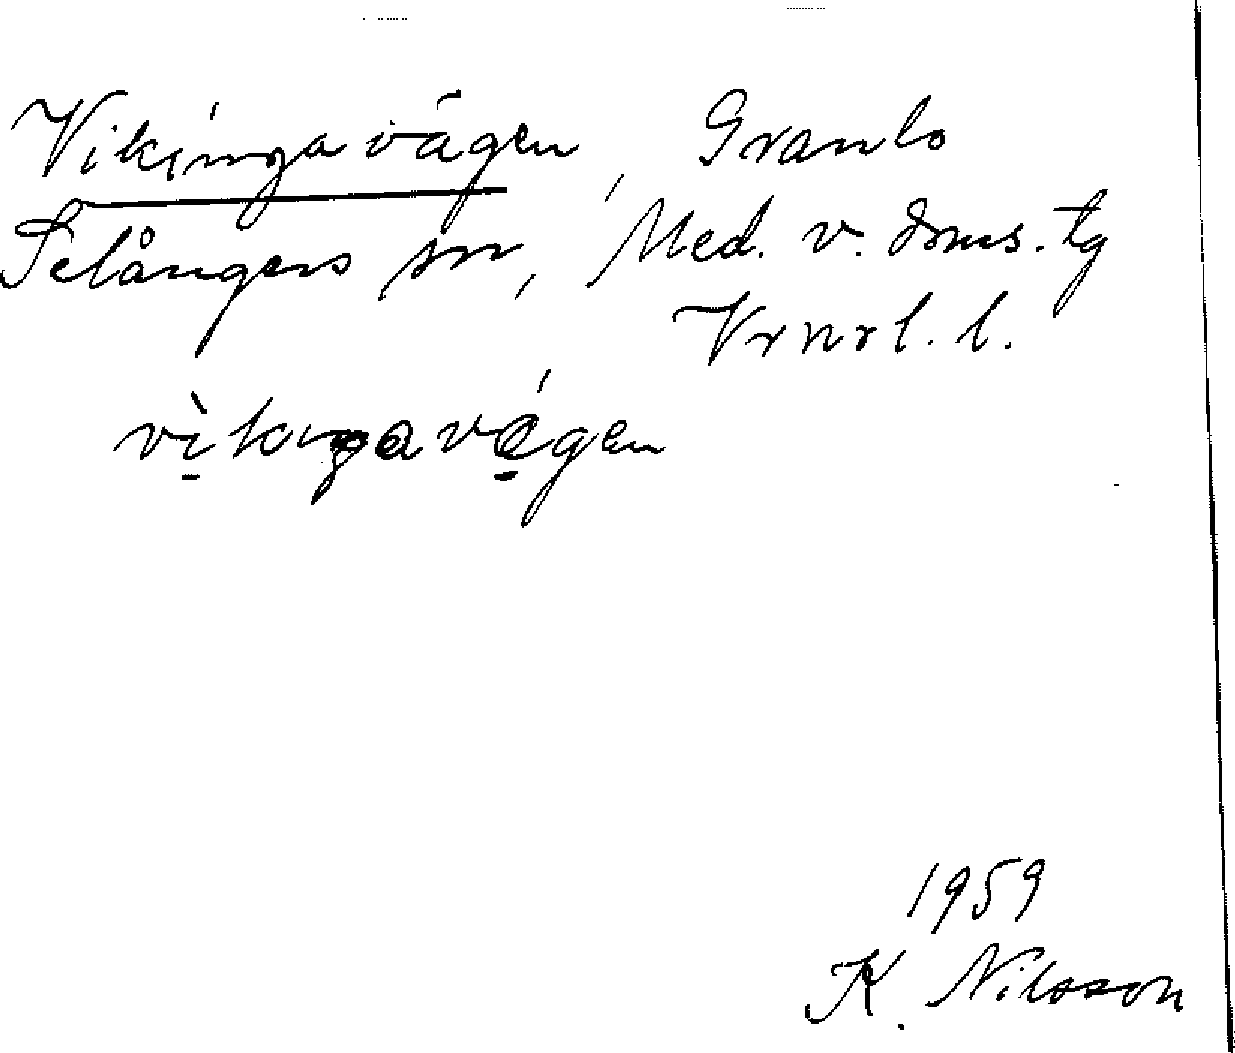 Vikingavägen, Granlo
Selångers sn, Med. v. doms. tg
Vrnrl. l.
vìkıŋgavä́gen
1959
K. Nilsson